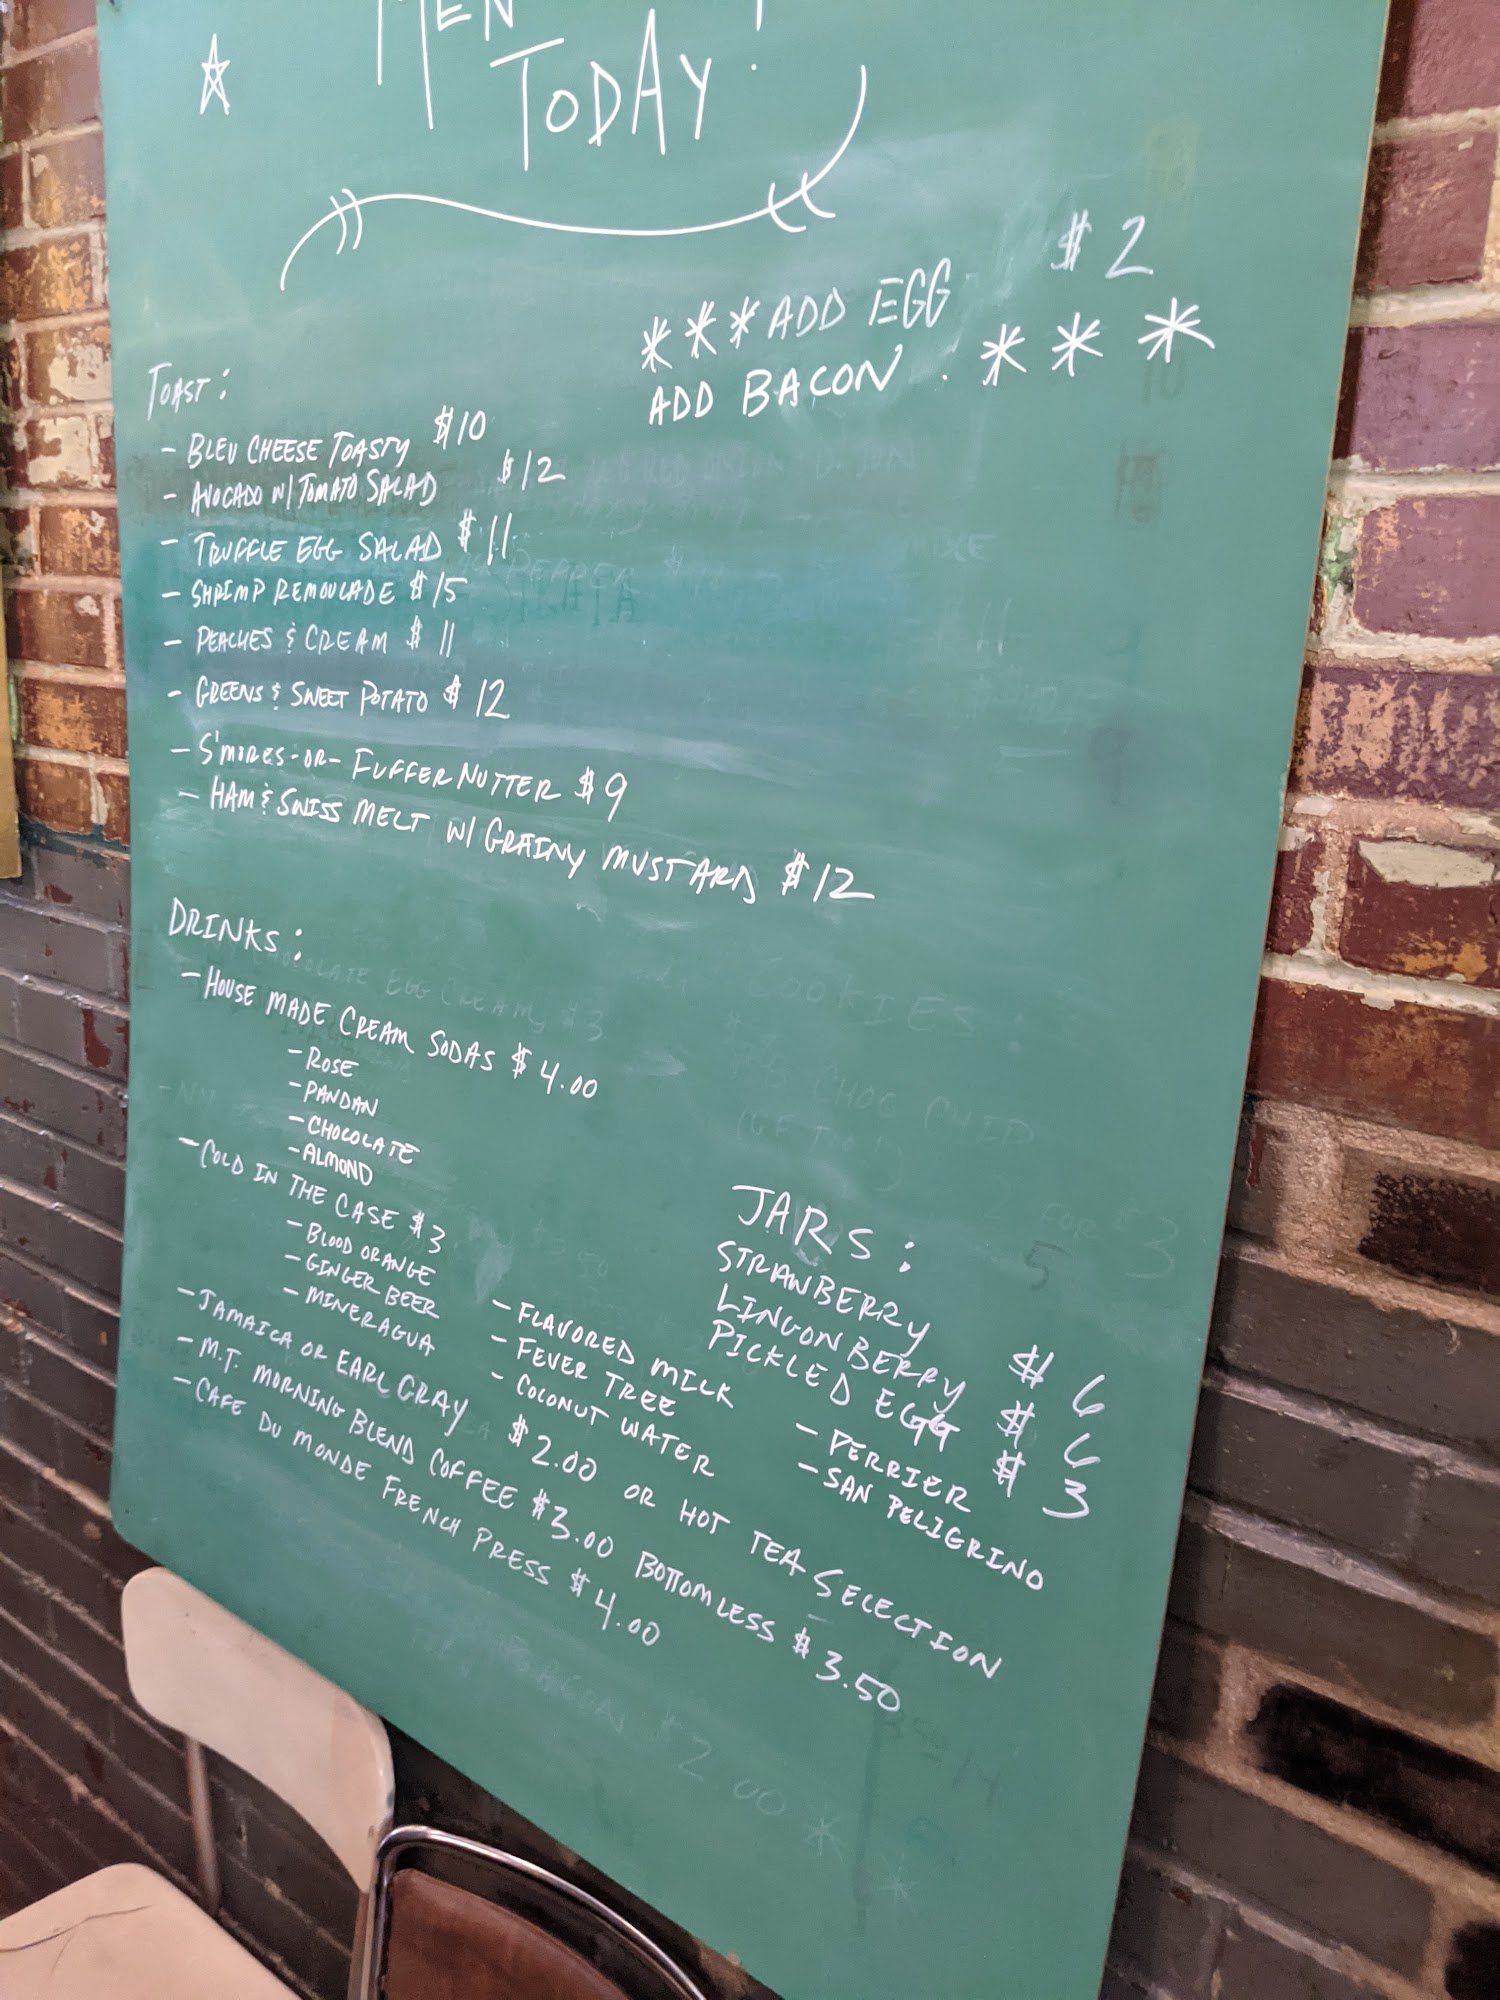 MEN
TODAY!
***ADD EGG $2
ADD BACON. ***
TOAST:
- BLEU CHEESE TOASTY $10
- AVOCADO W/ TOMATO SALAD $12
- TRUFFLE EGG SALAD $11
- SHRIMP REMOULADE $15
- PEACHES & CREAM $11
- GREENS & SWEET POTATO $12
- S'MORES -OR- FUFFERNUTTER $9
- HAM & SWISS MELT W/ GRAINY MUSTARD $12
DRINKS:
- HOUSE MADE CREAM SODAS $4.00
- ROSE
- PANDAN
- CHOCOLATE
- ALMOND
- COLD IN THE CASE $3
- BLOOD ORANGE
- GINGER BEER
- MINERAGUA
- FLAVORED MILK
- FEVER TREE
- COCONUT WATER
- PERRIER
- SAN PELIGRINO
- JAMAICA OR EARL GRAY $2.00 OR HOT TEA SELECTION
- M.T. MORNING BLEND COFFEE $3.00 BOTTOMLESS $3.50
- CAFE DU MONDE FRENCH PRESS $4.00
JARS:
STRAWBERRY $6
LINGONBERRY $6
PICKLED EGG $3